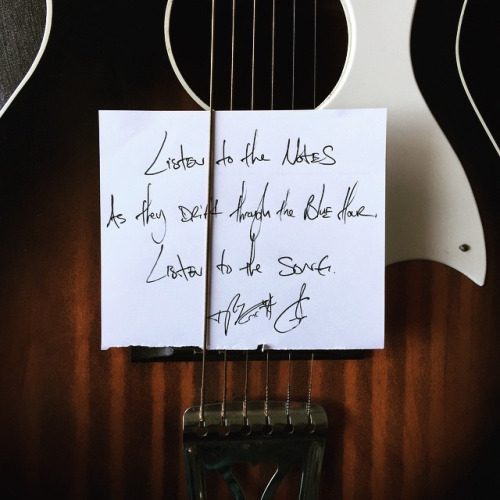 Listen to the Notes
As they Drift through the Blue Hour.
Listen to the Song.